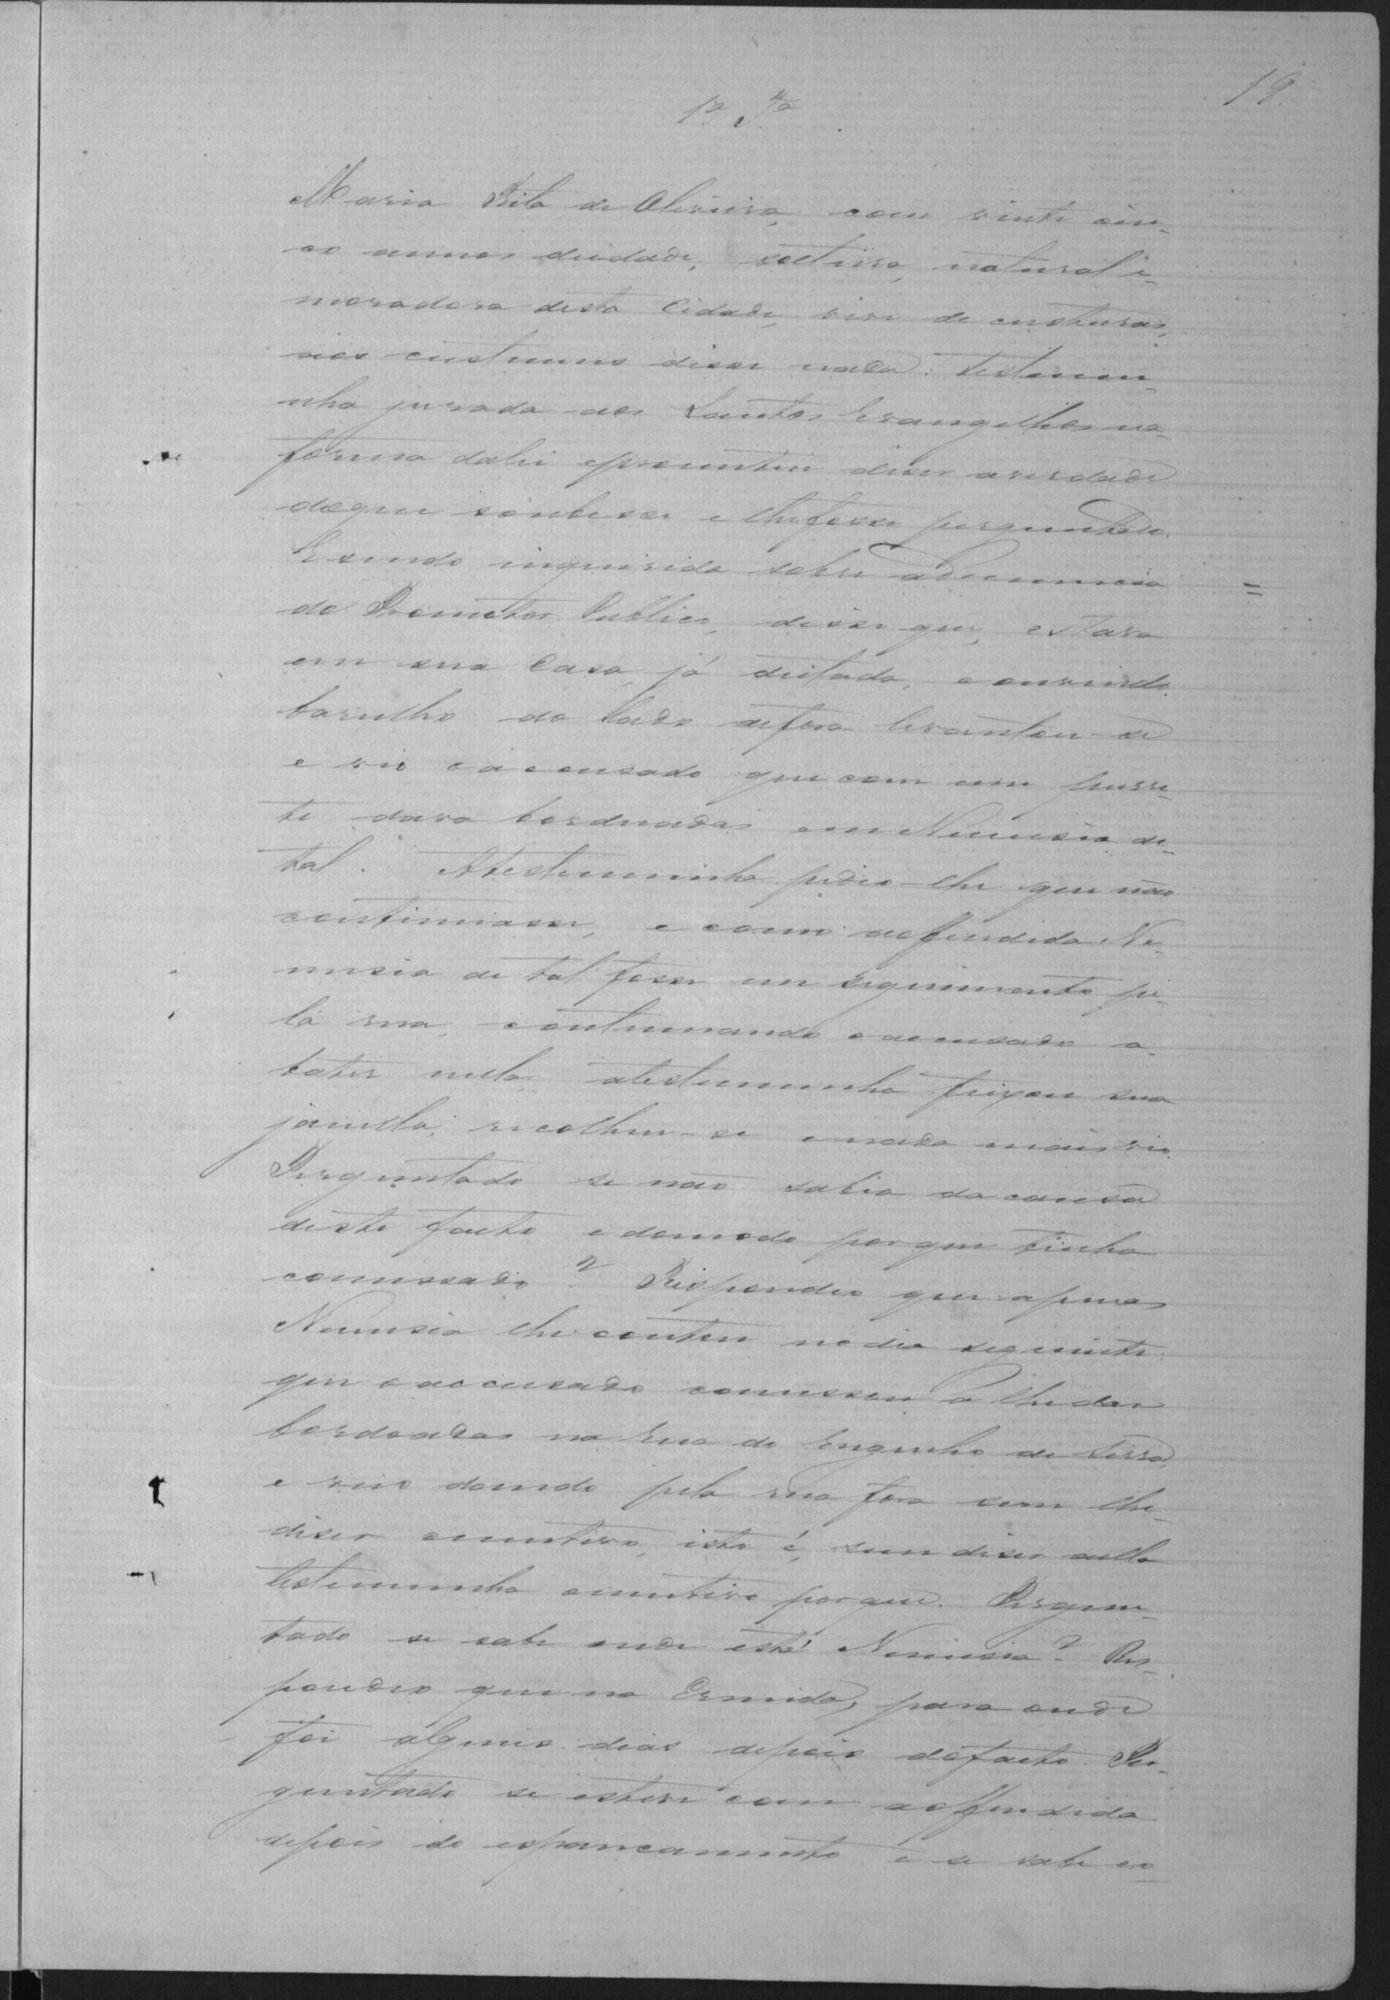 19
1ª Tª
Maria Rita de Oliveira, com vinte cin-
co annos deidade, solteira, natural e
moradora desta Cidade, vive de custuras,
aos custumes disse nada: testemu-
nha jurada aos Santos Evangelhos na
forma dalei eprometteu diser averdade
doque soubesse e lhefosse perguntado.
Esendo inquirida sobre adenuncia
do Promotor Publico, disse que, estava
em sua Casa, já deitada, e ouvindo
barulho do lado defora levantou-se
e vio o accusado que com um purre-
te dava borduadas em Nemesia de
tal. Atestemunha pedio-lhe que não
continuasse, e como aoffendida Ne-
mesia de tal fosse em seguimento pe-
la rua, continuando oaccusado a
bater nella atestemunha feixou sua
janella, recolheu-se enada mais vio.
Perguntado se não sabia da causa
deste facto edomodo porque tinha
comessado? Respondeo que apenas
Nemesia lhe contou nodia seguinte
que oaccusado comessou a lhedar
bordoadas na rua do Engenho de Serra,
e veio dando pela rua fora sem lhe
diser omotivo, isto é, sem diser aella
testemunha omotivo porque. Pergun-
tado se sabe onde está Nemesia? Res-
pondeo que na Ermida, para onde
foi alguns dias depois dofacto. Per-
guntado se esteve com aoffendida
depois do espancamento e se sabe co